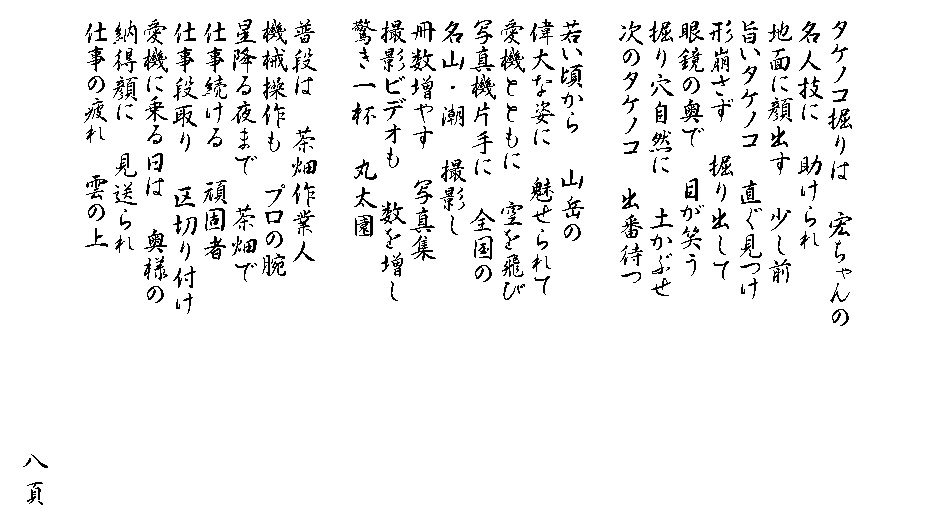 タケノコ掘りは　宏ちゃんの
名人技に　助けられ
地面に顔出す　少し前
旨いタケノコ　直ぐ見つけ
形崩さず　掘り出して
眼鏡の奥で　目が笑う
掘り穴自然に　土かぶせ
次のタケノコ　出番待つ
若い頃から　山岳の
偉大な姿に　魅せられて
愛機とともに　空を飛び
写真機片手に　全国の
名山・潮　撮影し
冊数増やす　写真集
撮影ビデオも　数を増し
驚き一杯　丸太園
普段は　茶畑作業人
機械操作も　プロの腕
星降る夜まで　茶畑で
仕事続ける　頑固者
仕事段取り　区切り付け
愛機に乗る日は　奥様の
納得顔に　見送られ
仕事の疲れ　雲の上
八頁